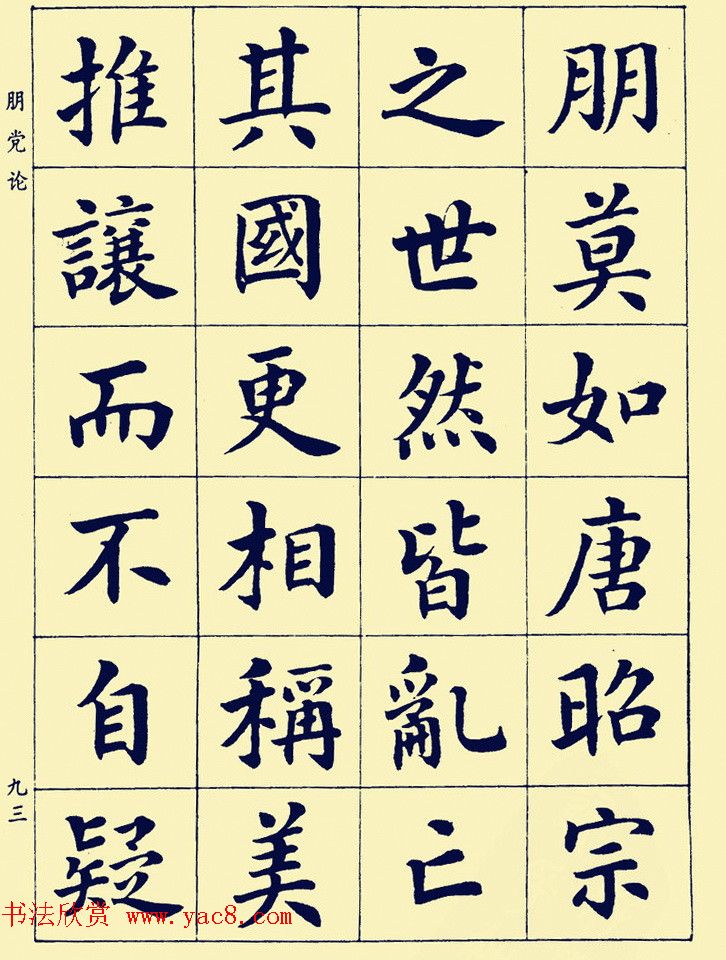 朋莫如唐昭宗
之世然皆亂亡
其國更相稱美
推讓而不自疑
朋党论
九三
书法欣赏 www.yac8.com